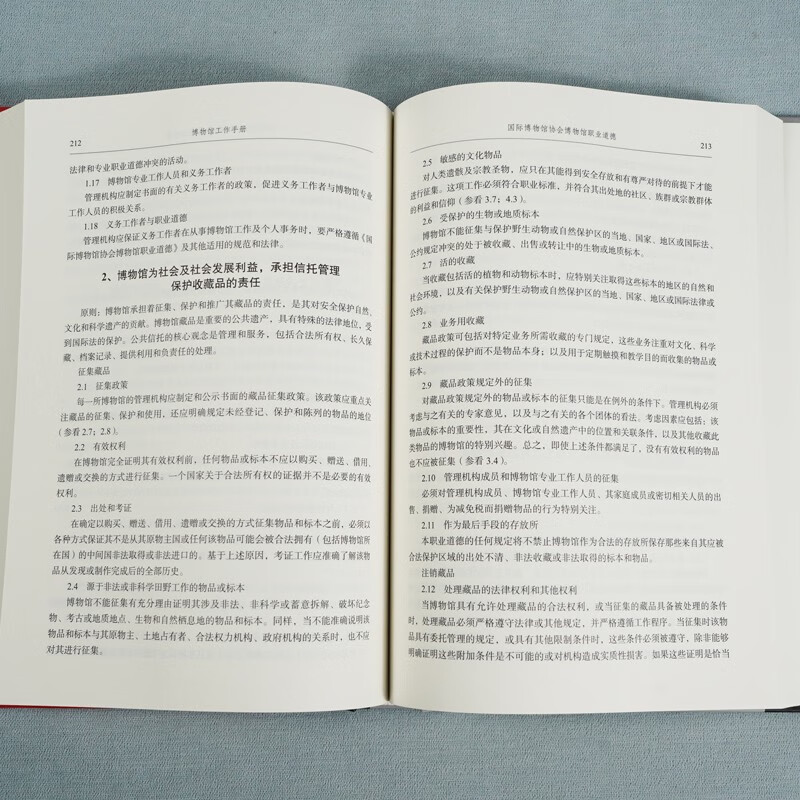 212
博物馆工作手册
法律和专业职业道德冲突的活动。
1.17 博物馆专业工作人员和义务工作者
管理机构应制定书面的有关义务工作者的政策，促进义务工作者与博物馆专业
工作人员的积极关系。
1.18 义务工作者与职业道德
管理机构应保证义务工作者在从事博物馆工作及个人事务时，要严格遵循《国
际博物馆协会博物馆职业道德》及其他适用的规范和法律。
2、博物馆为社会及社会发展利益，承担信托管理
保护收藏品的责任
原则：博物馆承担着征集、保护和推广其藏品的责任，是其对安全保护自然、
文化和科学遗产的贡献。博物馆藏品是重要的公共遗产，具有特殊的法律地位，受
到国际法的保护。公共信托的核心观念是管理和服务，包括合法所有权、长久保
藏、档案记录、提供利用和负责任的处理。
征集藏品
2.1 征集政策
每一所博物馆的管理机构应制定和公示书面的藏品征集政策。该政策应重点关
注藏品的征集、保护和使用，还应明确规定未经登记、保护和陈列的物品的地位
（参看2.7；2.8）。
2.2 有效权利
在博物馆完全证明其有效权利前，任何物品或标本不应以购买、赠送、借用、
遗赠或交换的方式进行征集。一个国家关于合法所有权的证据并不是必要的有效
权利。
2.3 出处和考证
在确定以购买、赠送、借用、遗赠或交换的方式征集物品和标本之前，必须以
各种方式保证其不是从其原物主国或任何该物品可能会被合法拥有（包括博物馆所
在国）的中间国非法取得或非法进口的。基于上述原因，考证工作应准确了解该物
品从发现或制作完成后的全部历史。
2.4 源于非法或非科学田野工作的物品或标本
博物馆不能征集有充分理由证明其涉及非法、非科学或蓄意拆解、破坏纪念
物、考古或地质地点、生物和自然栖息地的物品和标本。同样，当不能准确说明该
物品和标本与其原物主、土地占有者、合法权力机构、政府机构的关系时，也不应
对其进行征集。
国际博物馆协会博物馆职业道德
213
2.5 敏感的文化物品
对人类遗骸及宗教圣物，应只在其能得到安全存放和有尊严对待的前提下才能
进行征集。这项工作必须符合职业标准，并符合其出处地的社区、族群或宗教群体
的利益和信仰（参看3.7；4.3）。
2.6 受保护的生物或地质标本
博物馆不能征集与保护野生动物或自然保护区的当地、国家、地区或国际法、
公约规定冲突的处于被收藏、出售或转让中的生物或地质标本。
2.7 活的收藏
当收藏包括活的植物和动物标本时，应特别关注取得这些标本的地区的自然和
社会环境，以及有关保护野生动物或自然保护区的当地、国家、地区或国际法律或
公约。
2.8 业务用收藏
藏品政策可包括对特定业务所需收藏的专门规定，这些业务注重对文化、科学
或技术过程的保护而不是物品本身；以及用于定期触摸和教学目的而收集的物品或
标本。
2.9 藏品政策规定外的征集
对藏品政策规定外的物品或标本的征集只能是在例外的条件下。管理机构必须
考虑与之有关的专家意见，以及与之有关的各个团体的看法。考虑因素应包括：该
物品或标本的重要性，其在文化或自然遗产中的位置和关联条件，以及其他收藏此
类物品的博物馆的特别兴趣。总之，即使上述条件都满足了，没有有效权利的物品
也不应被征集（参看3.4）。
2.10 管理机构成员和博物馆专业工作人员的征集
必须对管理机构成员、博物馆专业工作人员、其家庭成员或密切相关人员的出
售、捐赠、为减免税而捐赠物品的行为特别关注。
2.11 作为最后手段的存放所
本职业道德的任何规定将不禁止博物馆作为合法的存放所保存那些来自其应被
合法保护区域的出处不清、非法收藏或非法取得的标本和物品。
注销藏品
2.12 处理藏品的法律权利和其他权利
当博物馆具有允许处理藏品的合法权利，或当征集的藏品具备被处理的条件
时，处理藏品必须严格遵守法律或其他规定，并严格遵循工作程序。当征集时该物
品具有委托管理的规定，或具有其他限制条件时，这些条件必须被遵守，除非能够
明确证明这些附加条件是不可能的或对机构造成实质性损害。如果这些证明是恰当